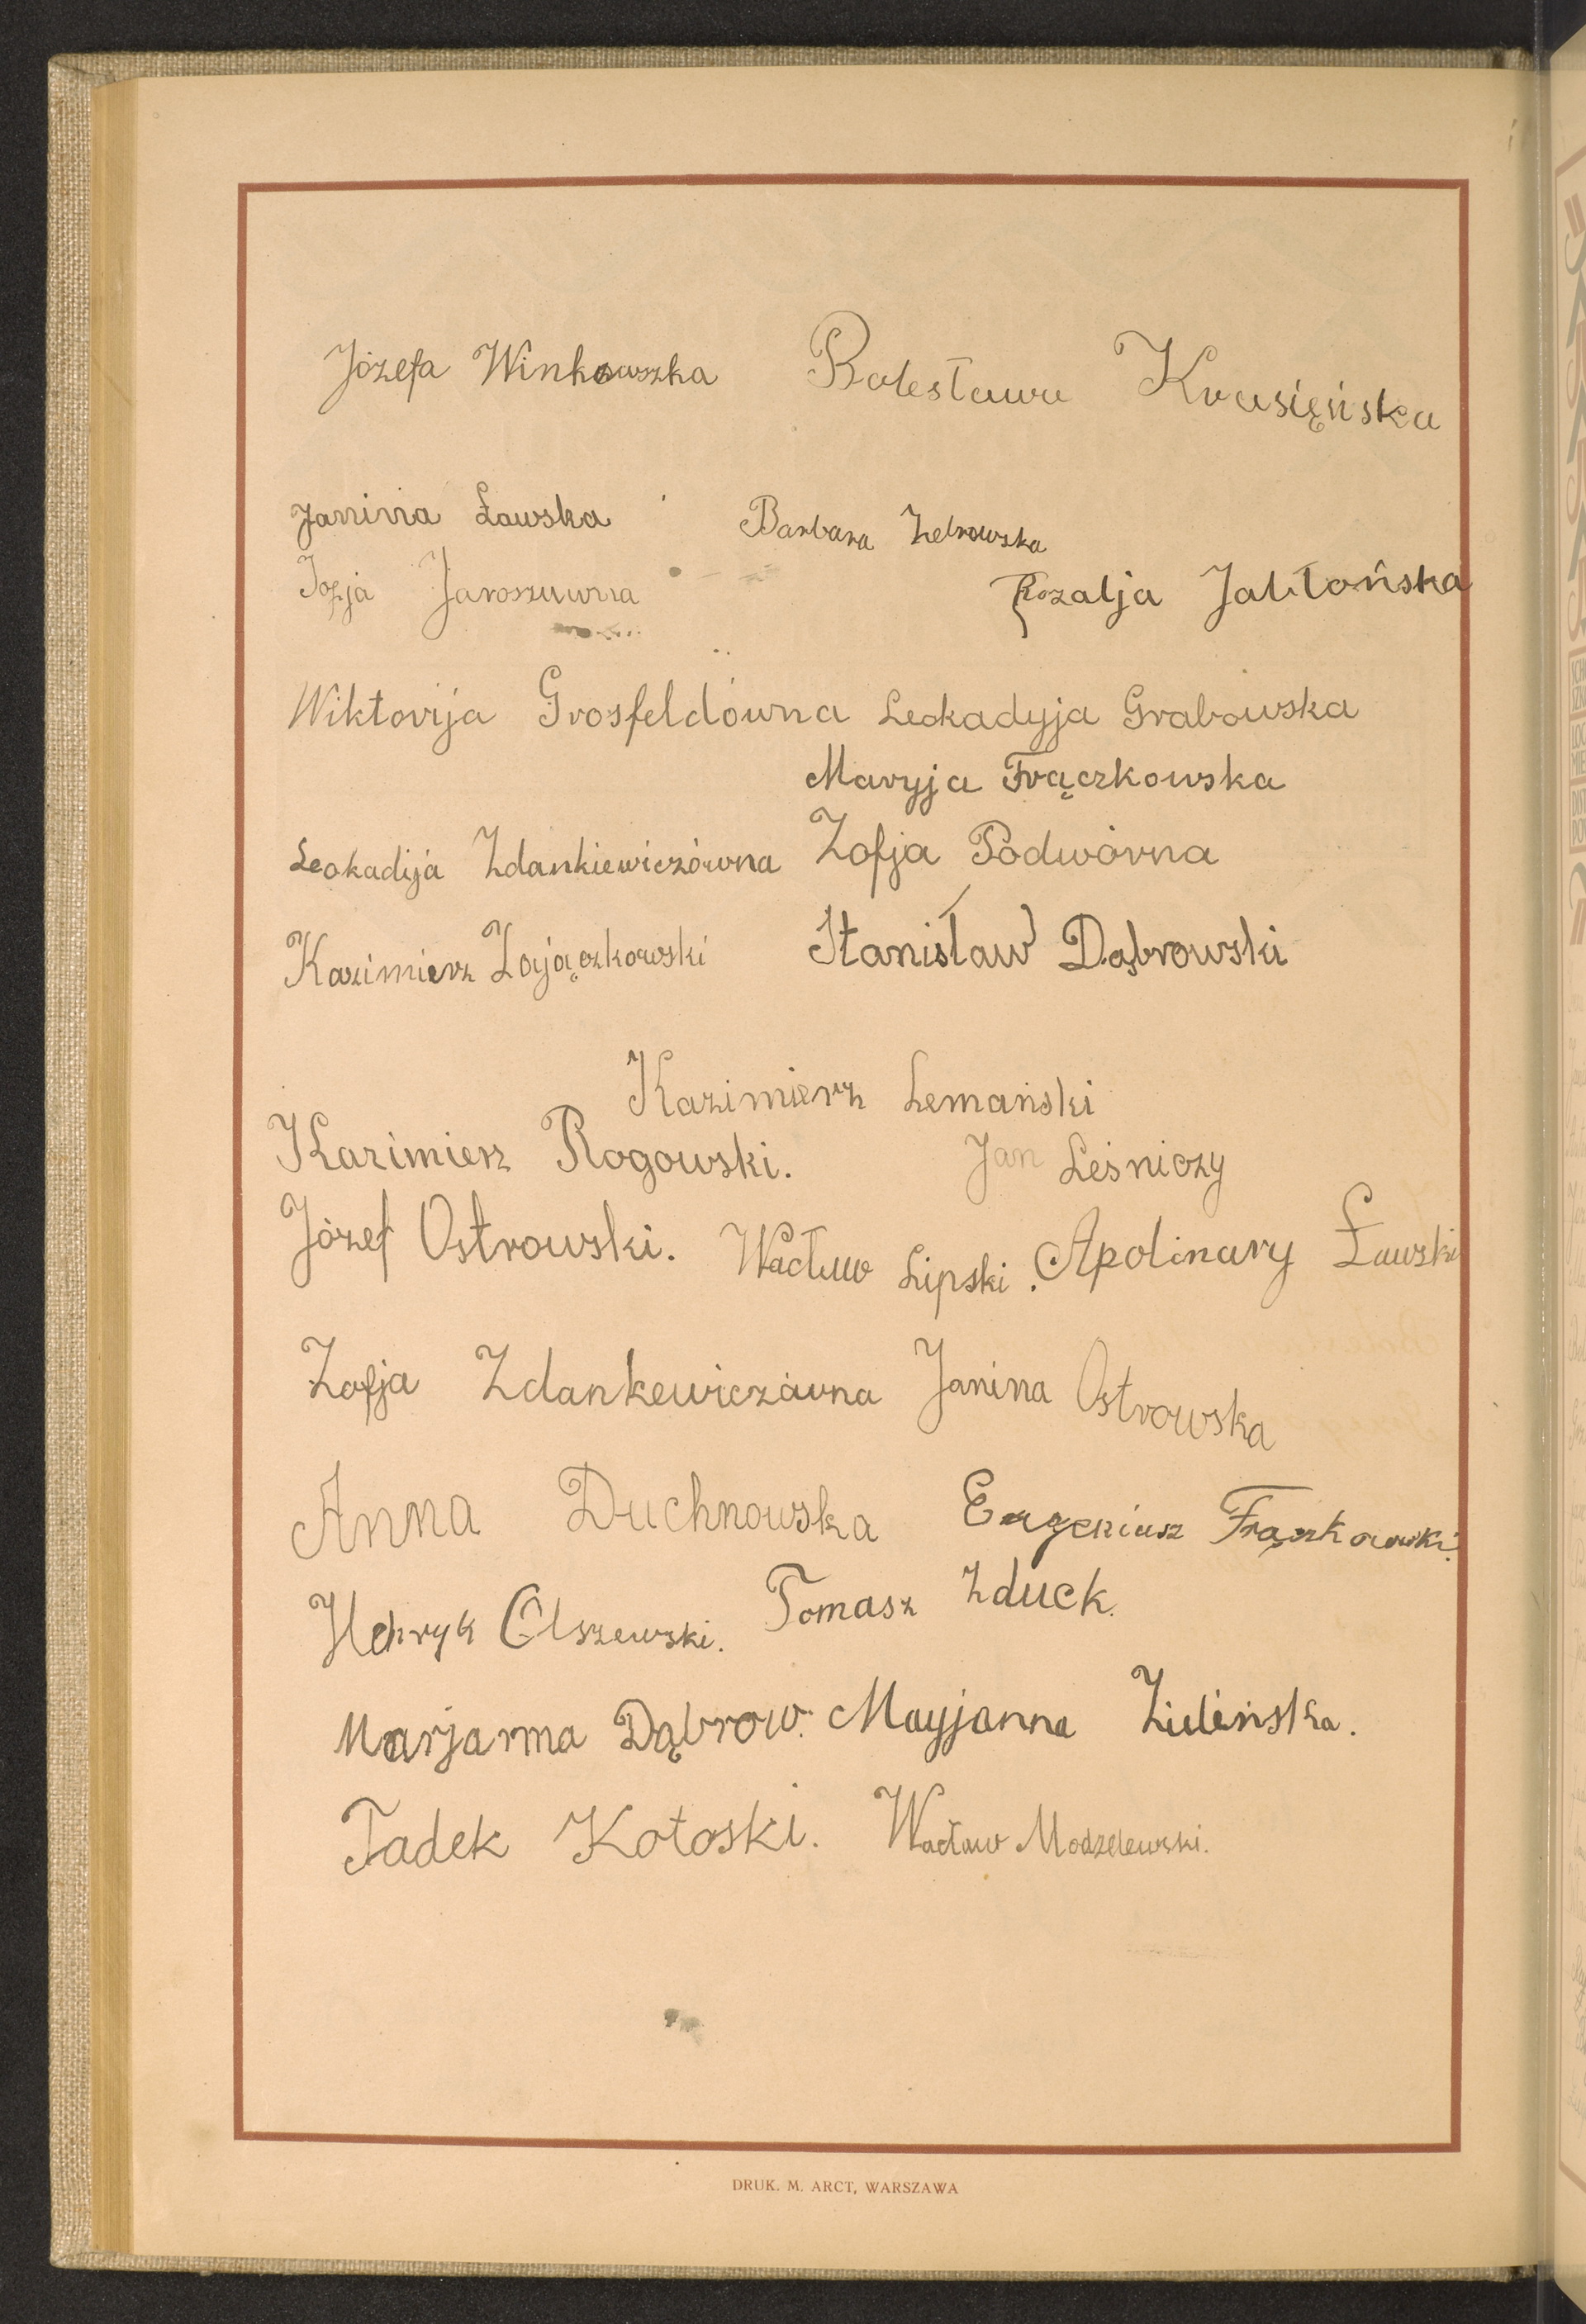 Józefa Winkowszka Bolesława Krusięńska
Janina Ławska Barbara Zebrowska
Zofja Jaroszuwna Rozalja Jabłońska
Wiktorija Grosfeldówna Leokadyja Grabowska
Maryja Frączkowska
Leokadija Zdankiewiczówna Zofja Podwórna
Kazimierz Zajączkowski Stanisław Dąbrowski
Kazimierz Lemański
Kazimierz Rogowski. Jan Leśniczy
Józef Ostrowski. Wacław Lipski. Apolinary Ławski
Zofja Zdankewiczówna Janina Ostrowska
Anna Duchnowska Eugeniusz Frączkowski.
Henryk Olszewski. Tomasz Zduck.
Marjanna Dąbrow. Mayjanna Zielińska.
Tadek Kotoski. Wacław Modzelewski.
DRUK. M. ARCT, WARSZAWA